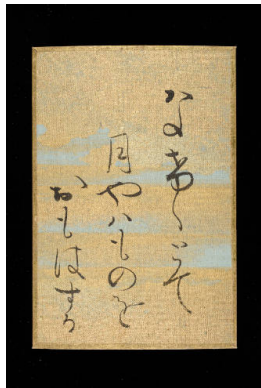 なけゝとて
月やはものを
おもはする